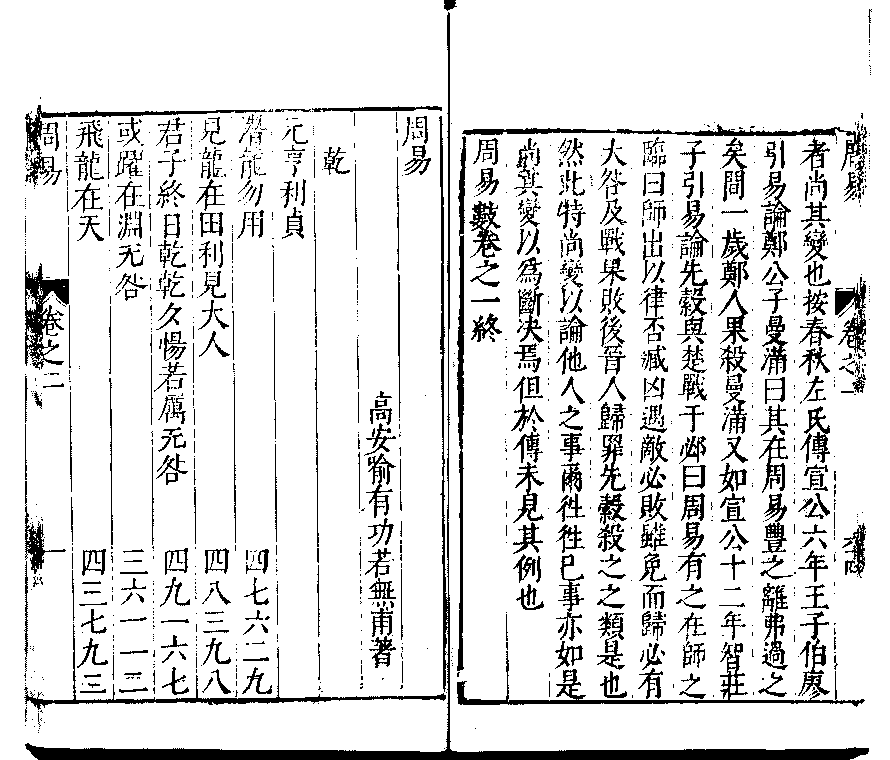 周易
卷之一
者尚其變也按春秋左氏傳宣公六年王子伯廖
引易論鄭公子曼滿曰其在周易豐之離弗過之
矣間一歲鄭人果殺曼滿又如宣公十二年智莊
子引易論先縠與楚戰于邲曰周易有之在師之
臨曰師出以律否臧凶遇敵必敗雖免而歸必有
大咎及戰果敗後晉人歸罪先縠殺之之類是也
然此特尚變以論他人之事爾徃徃巳事亦如是
尚其變以為斷决焉但於傳未見其例也
周易數卷之一終
周易
高安喻有功若無甫著
乾
元亨利貞
潛龍勿用 四七六二九
見龍在田利見大人 四八三九八
君子終日乾乾夕惕若厲无咎 四九一六七
或躍在淵无咎 三六一一二
飛龍在天 四三七九三
周易
卷之二
一